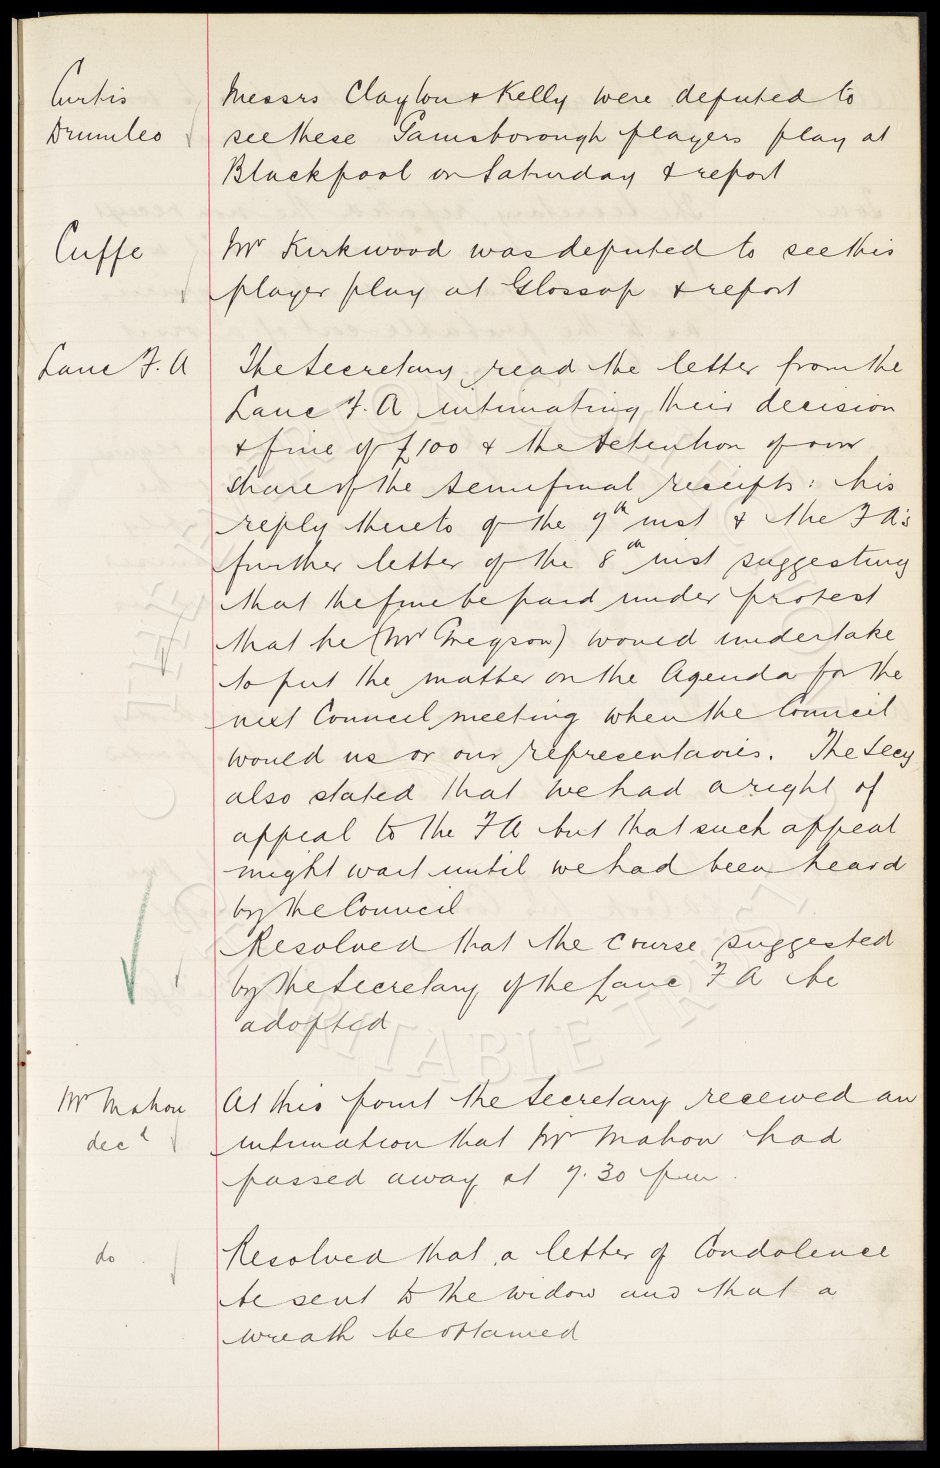 Curtis
Drumleo
Messrs Clayton & Kelly were deputed to
see these Gainsborough players play at
Blackpool on Saturday & report
Cuffe
Mr Kirkwood was deputed to see this
player play at Glossop & report
Lanc F.A
The Secretary read the letter from the
Lanc F.A intimating their decision
& fine of £100 & the detention of our
share of the semifinal receipts: his
reply thereto of the 7th inst & the FA's
further letter of the 8th inst suggesting
that the fine be paid under protest
that he (Mr Gregson) would undertake
to put the matter on the Agenda for the
next Council meeting when the Council
would us or our representavies. The Secy
also stated that we had a right of
appeal to the FA but that such appeal
might wait until we had been heard
by the Council
Resolved that the course suggested
by the Secretary of the Lanc F A be
adopted
Mr Mahon
decd
At this point the Secretary received an
intimation that Mr Mahon had
passed away at 7.30 pm.
do
Resolved that a letter of Condolence
be sent to the widow and that a
wreath be obtained